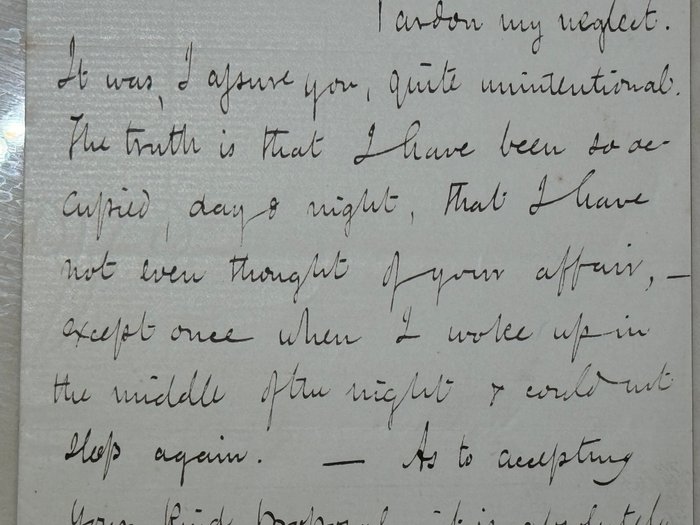 Pardon my neglect.
It was, I assure you, quite unintentional.
The truth is that I have been so oc-
cupied, day & night, that I have
not even thought of your affair, —
except once when I woke up in
the middle of the night & could not
sleep again. — As to accepting
your kind proposal, it is absolutely